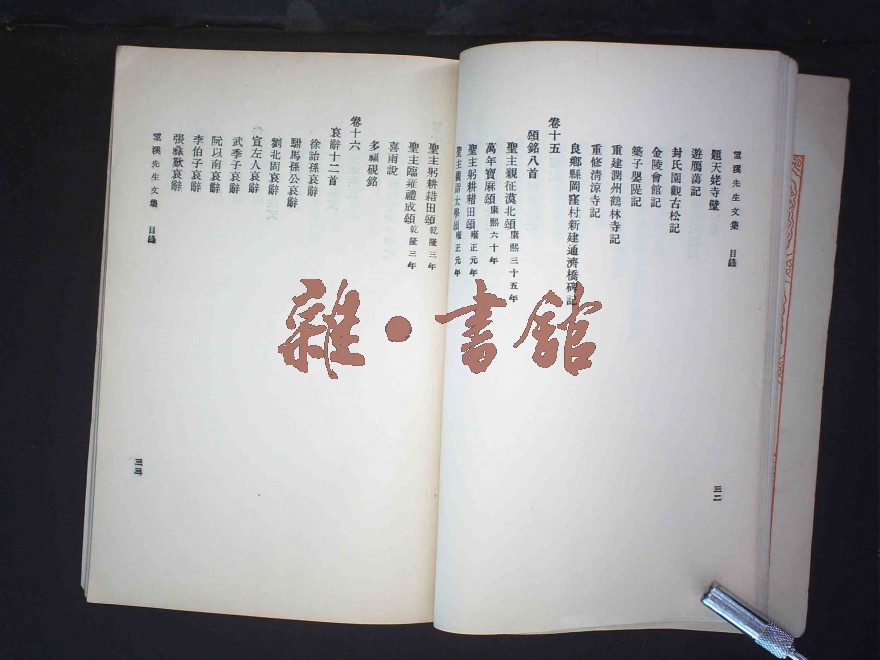 望溪先生文集 目錄
題天姥寺壁
遊鴈蕩記
封氏園觀古松記
金陵會館記
築子嬰隄記
重建潤州鶴林寺記
重修清涼寺記
良鄉縣岡窪村新建通濟橋碑記
卷十五
頌銘八首
聖主親征漠北頌康熙三十五年
萬年寶厤頌康熙六十年
聖主躬耕耤田頌雍正元年
聖主親詣太學頌雍正元年
三二
聖主躬耕耤田頌乾隆三年
聖主臨雍禮成頌乾隆三年
喜雨說
多福硯銘
卷十六
哀辭十二首
徐詒孫哀辭
駙馬孫公哀辭
劉北固哀辭
宣左人哀辭
武季子哀辭
阮以南哀辭
李伯子哀辭
張彝歎哀辭
望溪先生文集 目錄
三三
雜·書館